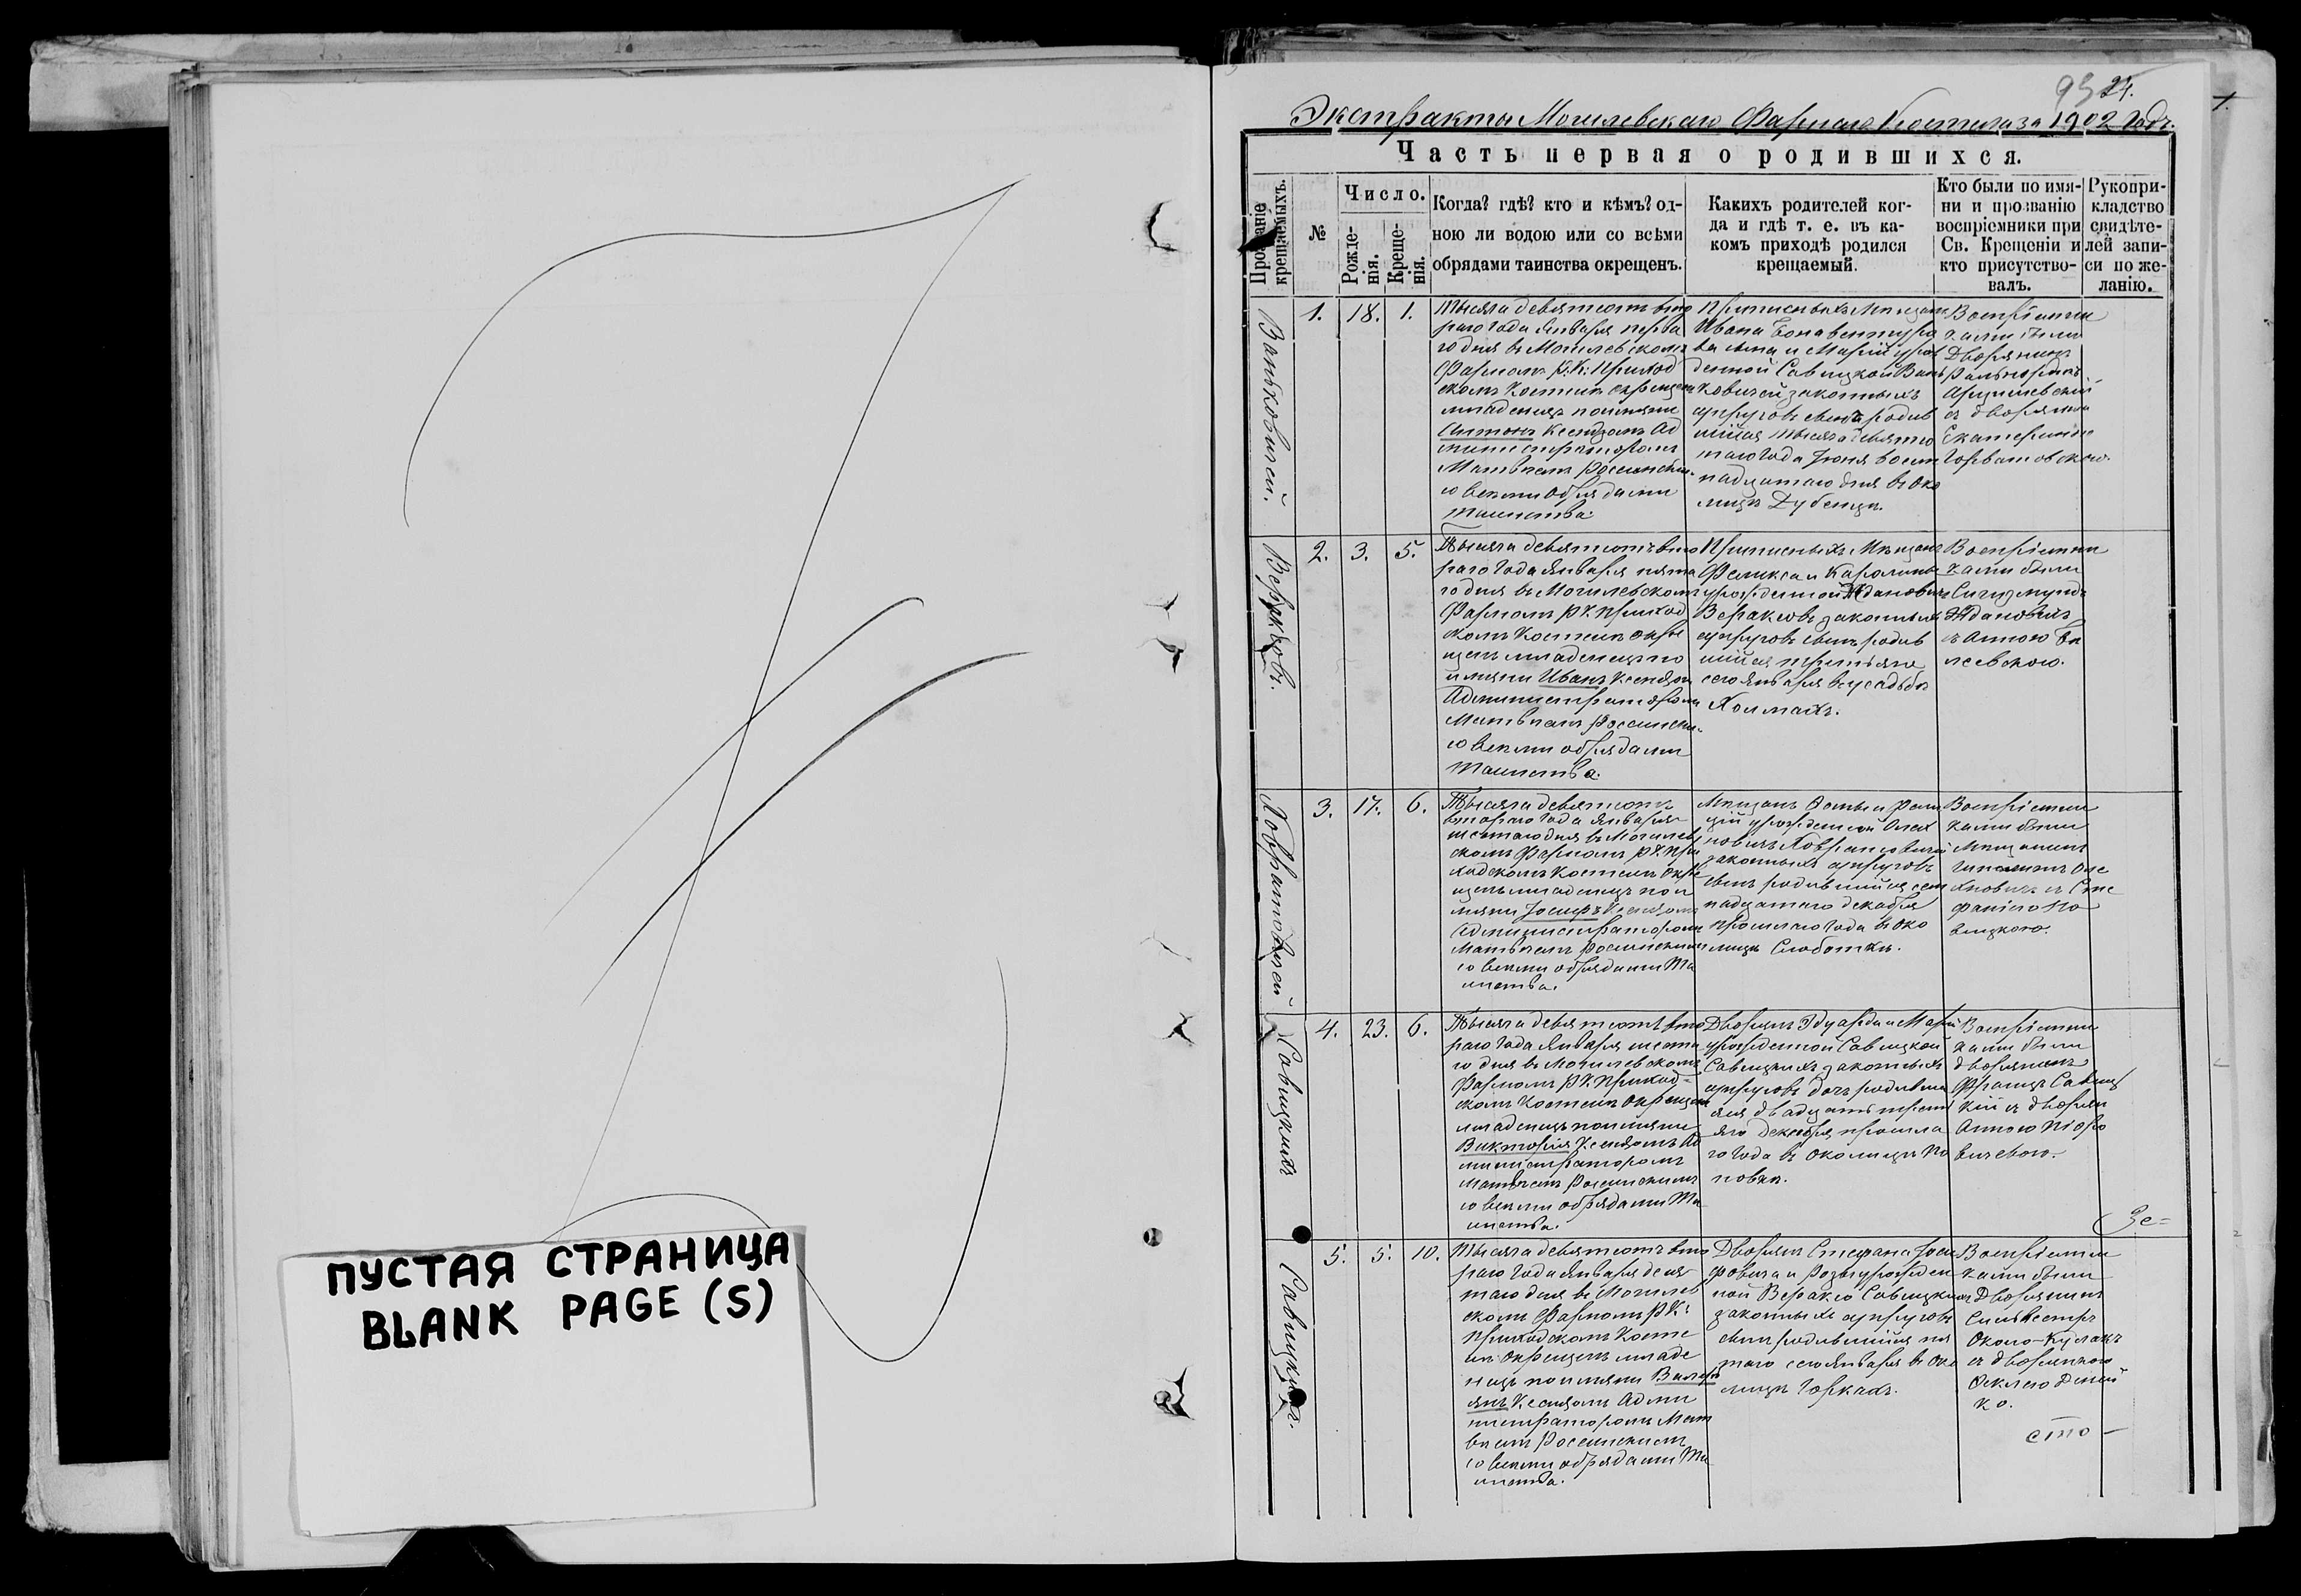 ПУСТАЯ СТРАНИЦА
BLANK PAGE (S)
95 24.
Экстрактъ Могилевскаго Фарнаго Костела за 1902 годъ.
Часть первая о родившихся.
Прозваніе крещаемыхъ.
№
Число.
Рожде-
нія.
Креще-
нія.
Когда? гдѣ? кто и кѣмъ? од-
ною ли водою или со всѣми
обрядами таинства окрещенъ.
Какихъ родителей ког-
да и гдѣ т. е. въ ка-
комъ приходѣ родился
крещаемый.
Кто были по имя-
ни и прозванію
воспріемники при
Св. Крещеніи и
кто присутство-
валъ.
Рукопри-
кладство
свидѣте-
лей запи-
си по же-
ланію.
Ваньковичей.
1. 18. 1.
Тысяча девятьсотъ вто
раго года Января перва
го дня въ Могилевскомъ
Фарномъ Р: К: Приход
скомъ Костелѣ окрещенъ
младенецъ по имяни
Антонъ Ксендзомъ Ад
министраторомъ
Матвѣемъ
со всѣми обрядами
таинства.
Приписныхъ Мѣщанъ
Ивана Бонавентура
и Маріи урож
денной Савицкой Вань
ковичей законныхъ
супруговъ сынъ родив
шійся тысяча девятьсо
таго года Іюня восем
надцатаго дня въ Око
лицѣ Дубенцѣ.
Воспріемни
ками были
Дворянинъ
съ дворянкою
Екатериною
Горватовскою.
Вераксовъ.
2. 3. 5.
Тысяча девятьсотъ вто
раго года Января пята
го дня въ Могилевскомъ
Фарномъ Р. К. Приход
скомъ Костелѣ окре
щенъ младенецъ по
имяни Иванъ Ксендзомъ
Администраторомъ
Матвѣемъ
со всѣми обрядами
таинства.
Приписныхъ Мѣщанъ
Феликса и Каролины
урожденной Ждановичъ
Вераксовъ законныхъ
супруговъ сынъ родив
шійся третьяго
сего Января въ усадьбѣ
Холмахъ.
Воспріемни
ками были
Сигизмундъ
Ждановичъ
съ Анною
Ховранковичей
3. 17. 6.
Тысяча девятьсотъ
втораго года Января
шестаго дня въ Могилев
скомъ Фарномъ Р. К. При
ходскомъ Костелѣ окре
щенъ младенецъ по и
мяни Іосифъ Ксендзомъ
Администраторомъ
Матвѣемъ
со всѣми обрядами Та
инства.
Мѣщанъ Фомы и Фели
ціи урожденной Олех
новичъ
законныхъ супруговъ
сынъ родившійся сем
надцатаго декабря
прошлаго года въ Око
лицѣ Слободкѣ.
Воспріемни
ками были
Мѣщанинъ
Оле
хновичъ съ Сте
фаніею
Савицкихъ
4. 23. 6.
Тысяча девятьсотъ вто
раго года Января шеста
го дня въ Могилевскомъ
Фарномъ Р. К. Приход-
скомъ Костелѣ окрещенъ
младенецъ по имяни
Викторія Ксендзомъ Ад
министраторомъ
Матвѣемъ
со всѣми обрядами Та
инства.
Дворянъ Эдуарда и Маріи
урожденной Савицкой
Савицкихъ законныхъ
супруговъ дочь родивша
яся двадцать треть
яго декабря прошла
го года въ Околицѣ По
повкѣ.
Воспріемни
ками были
дворянинъ
Францъ Савиц
кій съ дворян
Анною Піоро
вичевою.
Зе=
Савицкихъ.
5. 5. 10.
Тысяча девятьсотъ вто
раго года Января деся
таго дня въ Могилев
скомъ Фарномъ Р. К.
Приходскомъ Косте
лѣ окрещенъ младе
нецъ по имяни Валері
янъ Ксендзомъ Адми
нистраторомъ Мат
вѣемъ
со всѣми обрядами Та
инства.
Дворянъ Стефана Іоси
фовича и Розы урожден
ной Веракса Савицкихъ
законныхъ супруговъ
сынъ родившійся пя
таго сего Января въ Око
лицѣ Горкахъ.
Воспріемни
ками были
Дворянинъ
Сильвестръ
Около-Кулакъ
съ дворянкою
Феклею
ко.
сто –